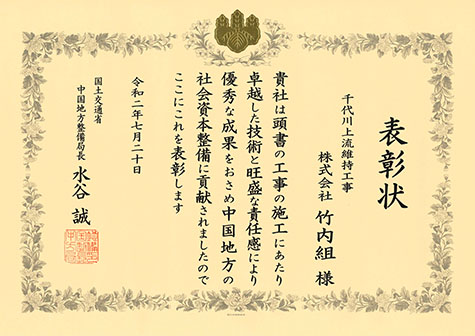 表彰状
千代川上流維持工事
株式会社 竹内組 様
貴社は頭書の工事の施工にあたり
卓越した技術と旺盛な責任感により
優秀な成果をおさめ中国地方の
社会資本整備に貢献されましたので
ここにこれを表彰します
令和二年七月二十日
国土交通省
中国地方整備局長 水谷 誠